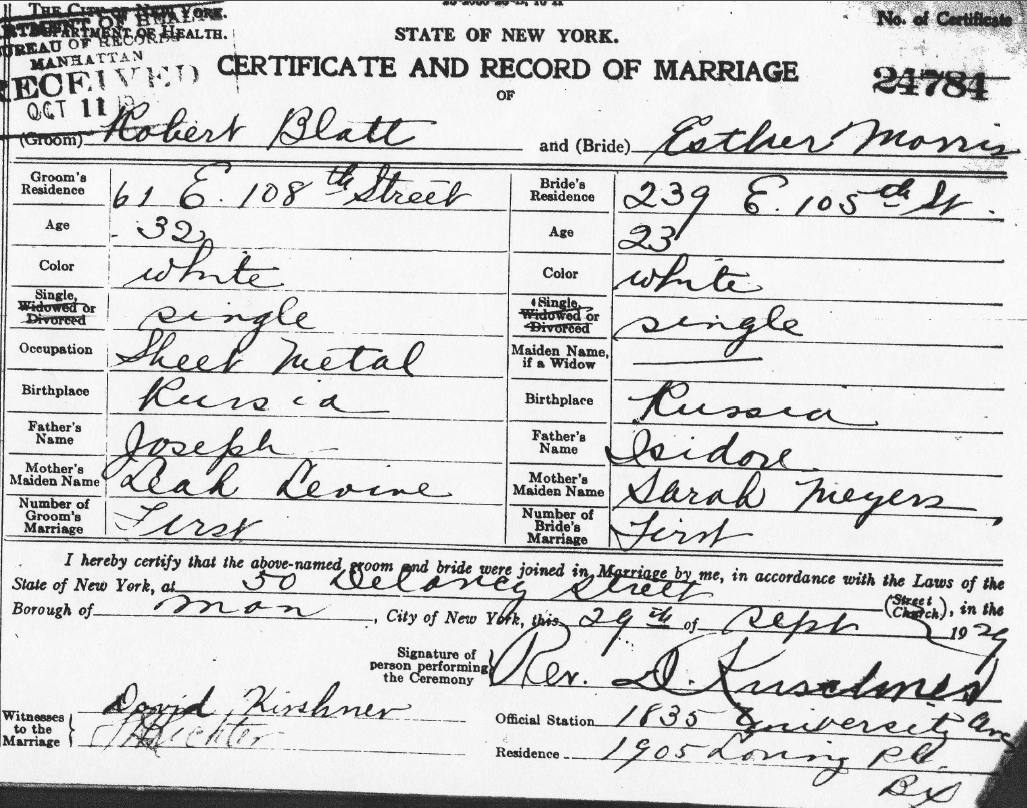 THE CITY OF NEW YORK.
DEPARTMENT OF HEALTH.
BUREAU OF RECORDS
MANHATTAN
RECEIVED
OCT 11
STATE OF NEW YORK.
No. of Certificate
CERTIFICATE AND RECORD OF MARRIAGE
24784
OF
(Groom) Robert Blatt and (Bride) Esther Morris
Groom's Residence 61 E. 108th Street Bride's Residence 239 E. 105th St.
Age 32 Age 23
Color white Color white
Single, Widowed or Divorced single Single, Widowed or Divorced single
Occupation Sheet Metal Maiden Name, if a Widow
Birthplace Russia Birthplace Russia
Father's Name Joseph Father's Name Isidore
Mother's Maiden Name Leah Levine Mother's Maiden Name Sarah Meyers
Number of Groom's Marriage First Number of Bride's Marriage First
I hereby certify that the above-named groom and bride were joined in Marriage by me, in accordance with the Laws of the
State of New York, at 50 Delancy Street (Street Church), in the
Borough of Man, City of New York, this 29th of Sept 1929
Signature of person performing the Ceremony Rev. D.
David Kirshner
Witnesses to the Marriage Richter
Official Station 1835 University Ave
Residence 1905 Loring Pl.
Bx